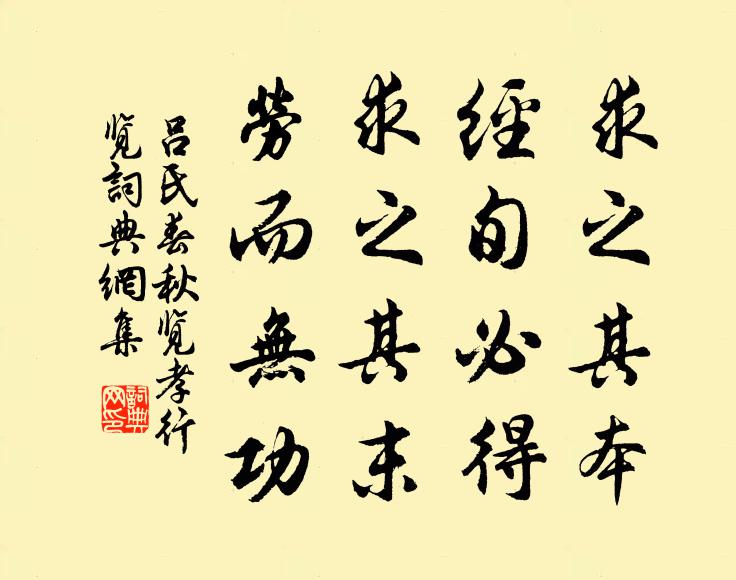 求之其本
經旬必得
求之其末
勞而無功
吕氏春秋览孝行
览詞典網集
詞典
网印